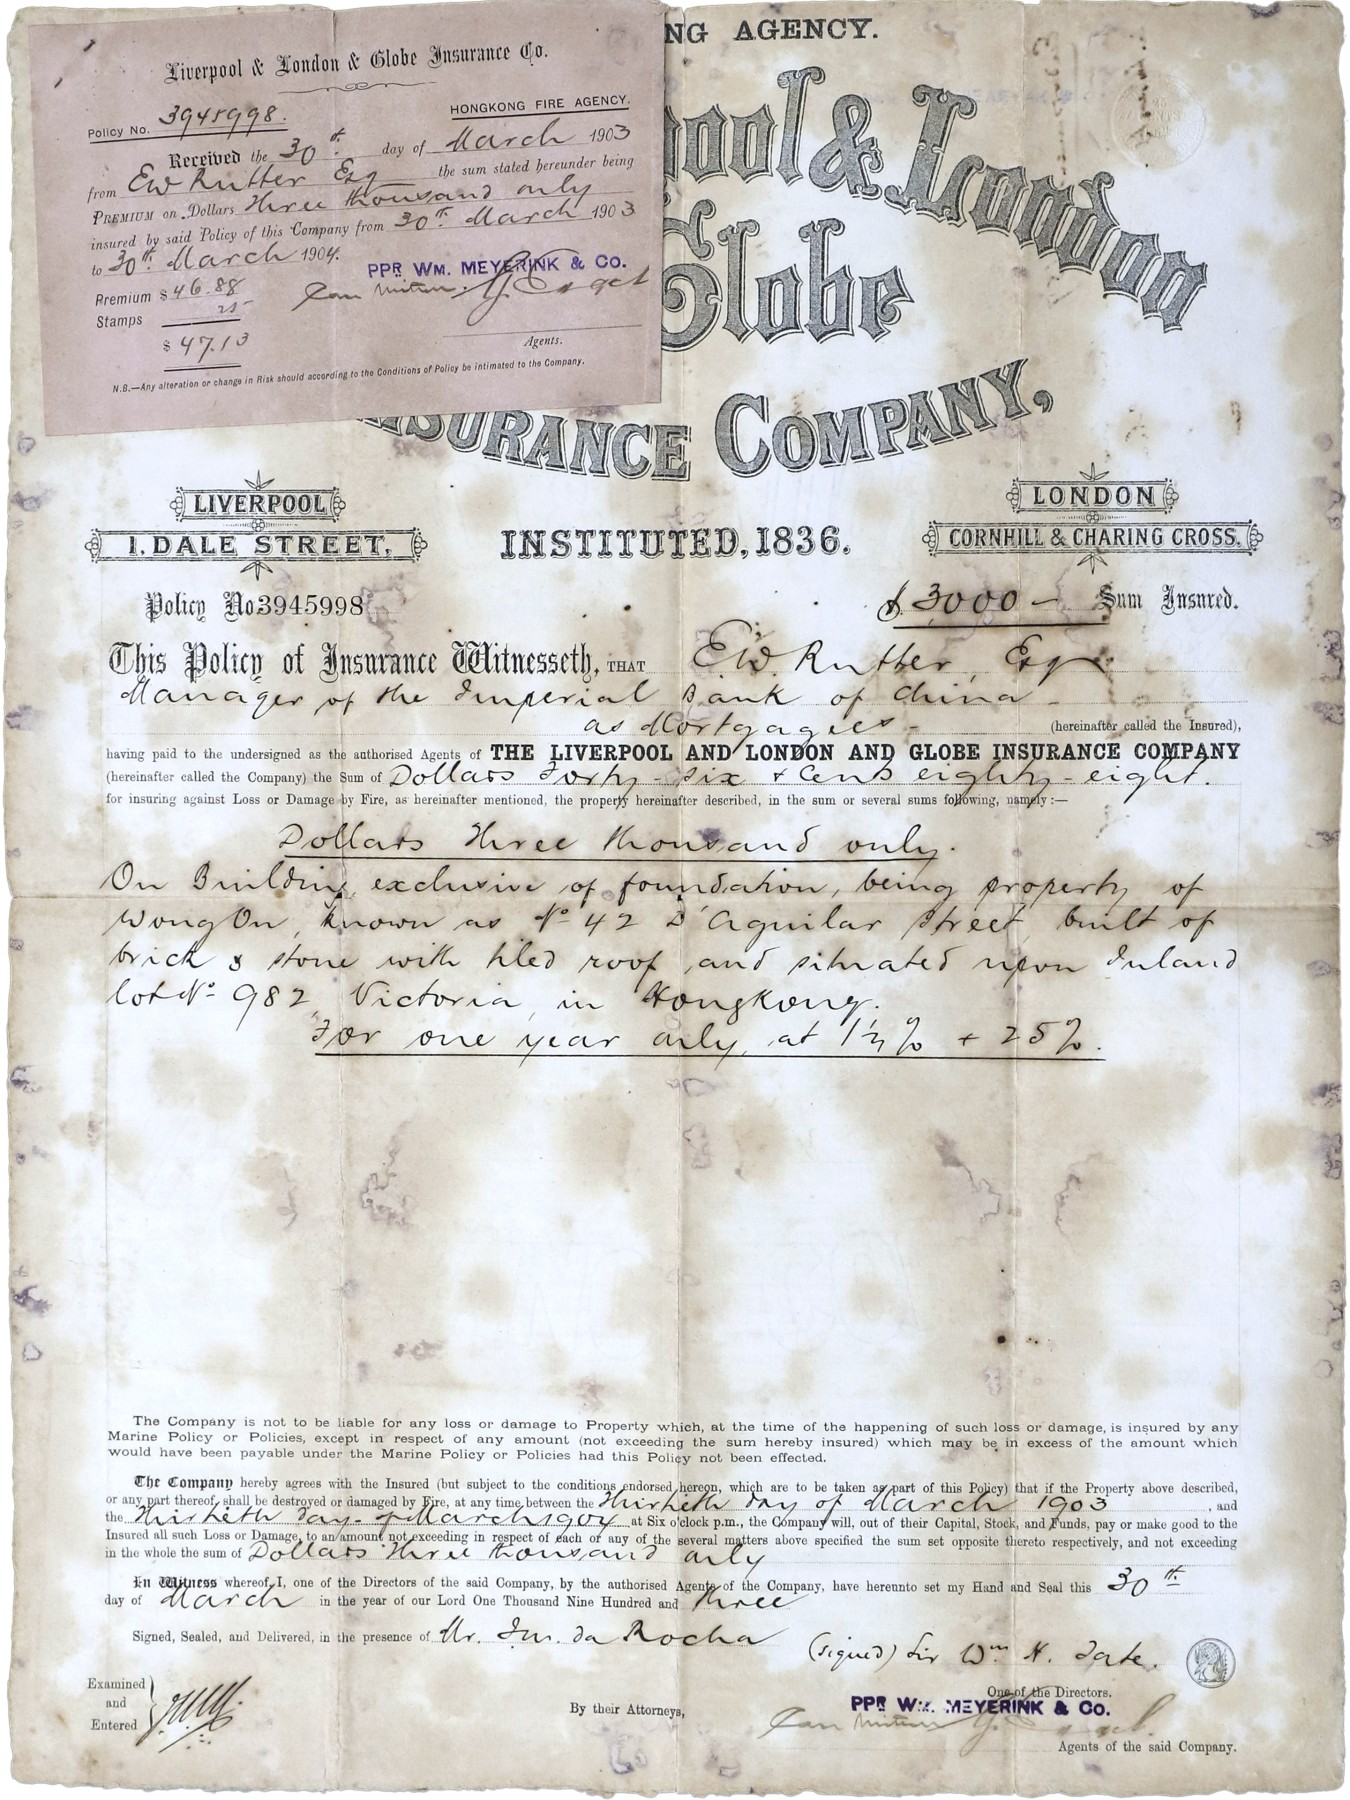 Liverpool & London & Globe Insurance Co.
HONGKONG FIRE AGENCY.
Policy No. 3945998.
Received the 30th day of March 1903
from EW Rutter Esq the sum stated hereunder being
PREMIUM on Dollars three thousand only
insured by said Policy of this Company from 30th March 1903
to 30th March 1904.
PPR WM. MEYERINK & CO.
Premium $46.88
Stamps 25
$47.13
Agents.
N.B.—Any alteration or change in Risk should according to the Conditions of Policy be intimated to the Company.
NG AGENCY.
pool & London
Globe
INSURANCE COMPANY,
LIVERPOOL
1. DALE STREET,
INSTITUTED, 1836.
LONDON
CORNHILL & CHARING CROSS.
Policy No 3945998
$3000 – Sum Insured.
This Policy of Insurance Witnesseth, THAT E.W. Rutter, Esqr
Manager of the Imperial Bank of China
as Mortgagees – (hereinafter called the Insured),
having paid to the undersigned as the authorised Agents of THE LIVERPOOL AND LONDON AND GLOBE INSURANCE COMPANY
(hereinafter called the Company) the Sum of Dollars Forty-six & Cents eighty-eight.
for insuring against Loss or Damage by Fire, as hereinafter mentioned, the property hereinafter described, in the sum or several sums following, namely:—
Dollars three thousand only.
On Building, exclusive of foundation, being property of
Wong On, known as No 42 D'Aguilar Street, built of
brick & stone with tiled roof, and situated upon Inland
lot No 982, Victoria, in Hongkong.
For one year only, at 1¼% + 25%.
The Company is not to be liable for any loss or damage to Property which, at the time of the happening of such loss or damage, is insured by any
Marine Policy or Policies, except in respect of any amount (not exceeding the sum hereby insured) which may be in excess of the amount which
would have been payable under the Marine Policy or Policies had this Policy not been effected.
The Company hereby agrees with the Insured (but subject to the conditions endorsed hereon, which are to be taken as part of this Policy) that if the Property above described,
or any part thereof, shall be destroyed or damaged by Fire, at any time between the thirtieth day of March 1903, and
the thirtieth day of March 1904 at Six o'clock p.m., the Company will, out of their Capital, Stock, and Funds, pay or make good to the
Insured all such Loss or Damage, to an amount not exceeding in respect of each or any of the several matters above specified the sum set opposite thereto respectively, and not exceeding
in the whole the sum of Dollars three thousand only
In Witness whereof I, one of the Directors of the said Company, by the authorised Agents of the Company, have hereunto set my Hand and Seal this 30th
day of March in the year of our Lord One Thousand Nine Hundred and three
Signed, Sealed, and Delivered, in the presence of Mr. Jm. da Rocha
(signed) Sir Wm H. Tate.
One of the Directors.
Examined
and
Entered
By their Attorneys,
PPR WM. MEYERINK & CO.
Agents of the said Company.